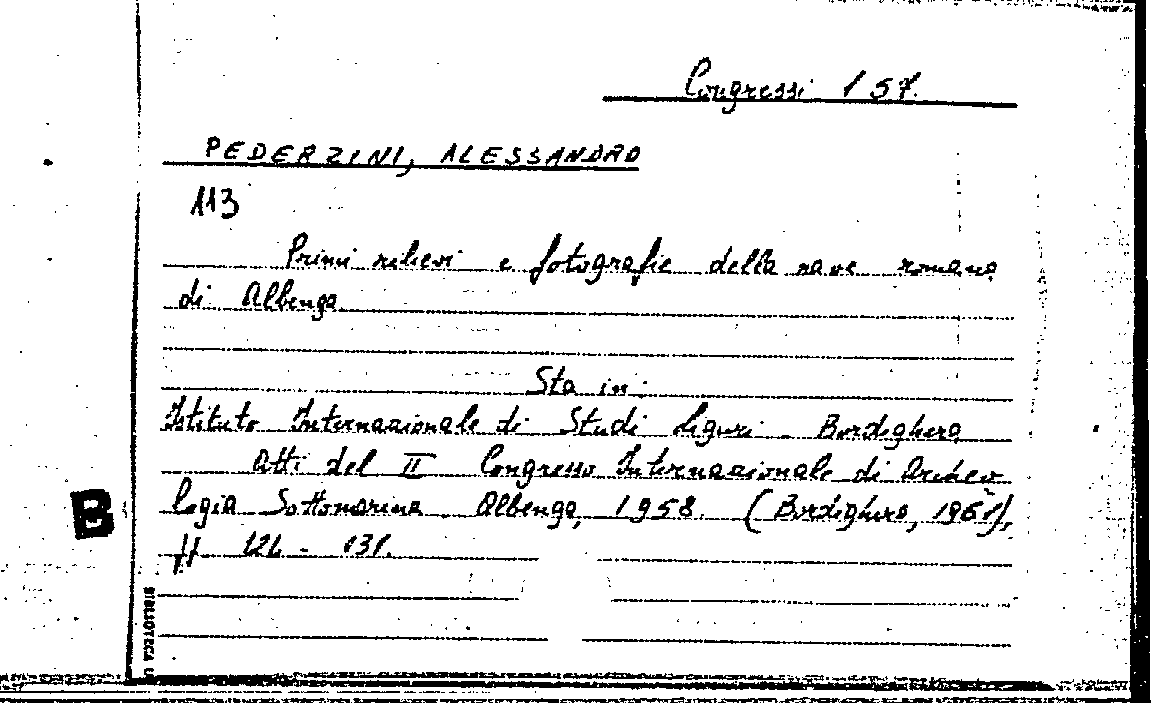 Congressi 157.
PEDERZINI, ALESSANDRO
113
Primi rilievi e fotografie della nave romana
di Albenga
Sta in:
Istituto Internazionale di Studi Liguri - Bordighera
Atti del II Congresso Internazionale di Archeo
logia Sottomarina. Albenga, 1958. (Bordighera, 1961),
B
pp 124 - 131.
BIBLIOTECA